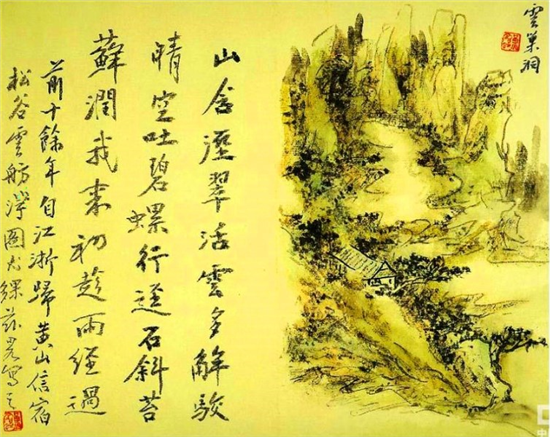 雲巢洞
山含溼翠活雲多解駁
晴空吐碧螺行逕石斜苔
蘚潤我來初趁雨經過
前十餘年自江浙歸黃山信宿
松谷雲舫寫之